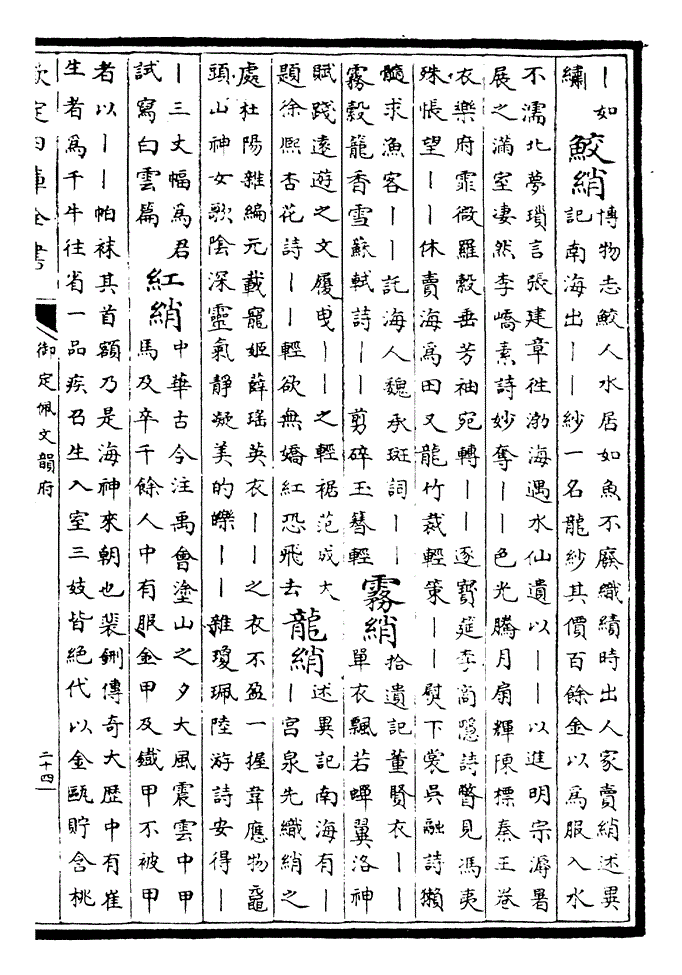 ｜如
繡
鮫綃
博物志鮫人水居如魚不廢織績時出人家賣綃述異
記南海出｜｜紗一名龍紗其價百餘金以為服入水
不濡北夢瑣言張建章往渤海遇水仙遺以｜｜以進明宗溽暑
展之滿室凄然李嶠素詩妙奪｜｜色光騰月扇輝陳標秦王卷
衣樂府霏微羅縠垂芳袖宛轉｜｜逐寳筵李商隱詩瞥見馮夷
殊悵望｜｜休賣海為田又龍竹裁輕策｜｜熨下裳吳融詩獺
髓求漁客｜｜託海人魏承班詞｜｜
霧縠籠香雪蘇軾詩｜｜剪碎玉簪輕
霧綃
拾遺記董賢衣｜｜
單衣飄若蟬翼洛神
賦踐遠遊之文履曳｜｜之輕裾范成大
題徐熙杏花詩｜｜輕欲無嬌紅恐飛去
龍綃
述異記南海有｜
｜宫泉先織綃之
處杜陽雜編元載寵姬薛瑶英衣｜｜之衣不盈一握韋應物黿
頭山神女歌陰深靈氣靜凝美的皪｜｜雜瓊珮陸游詩安得｜
｜三丈幅為君
試寫白雲篇
紅綃
中華古今注禹會塗山之夕大風震雲中甲
馬及卒千餘人中有服金甲及鐵甲不被甲
者以｜｜帕袜其首額乃是海神來朝也裴鉶傳奇大歴中有崔
生者為千牛往省一品疾召生入室三妓皆絶代以金甌貯含桃
欽定四庫全書
御定佩文韻府
二十四